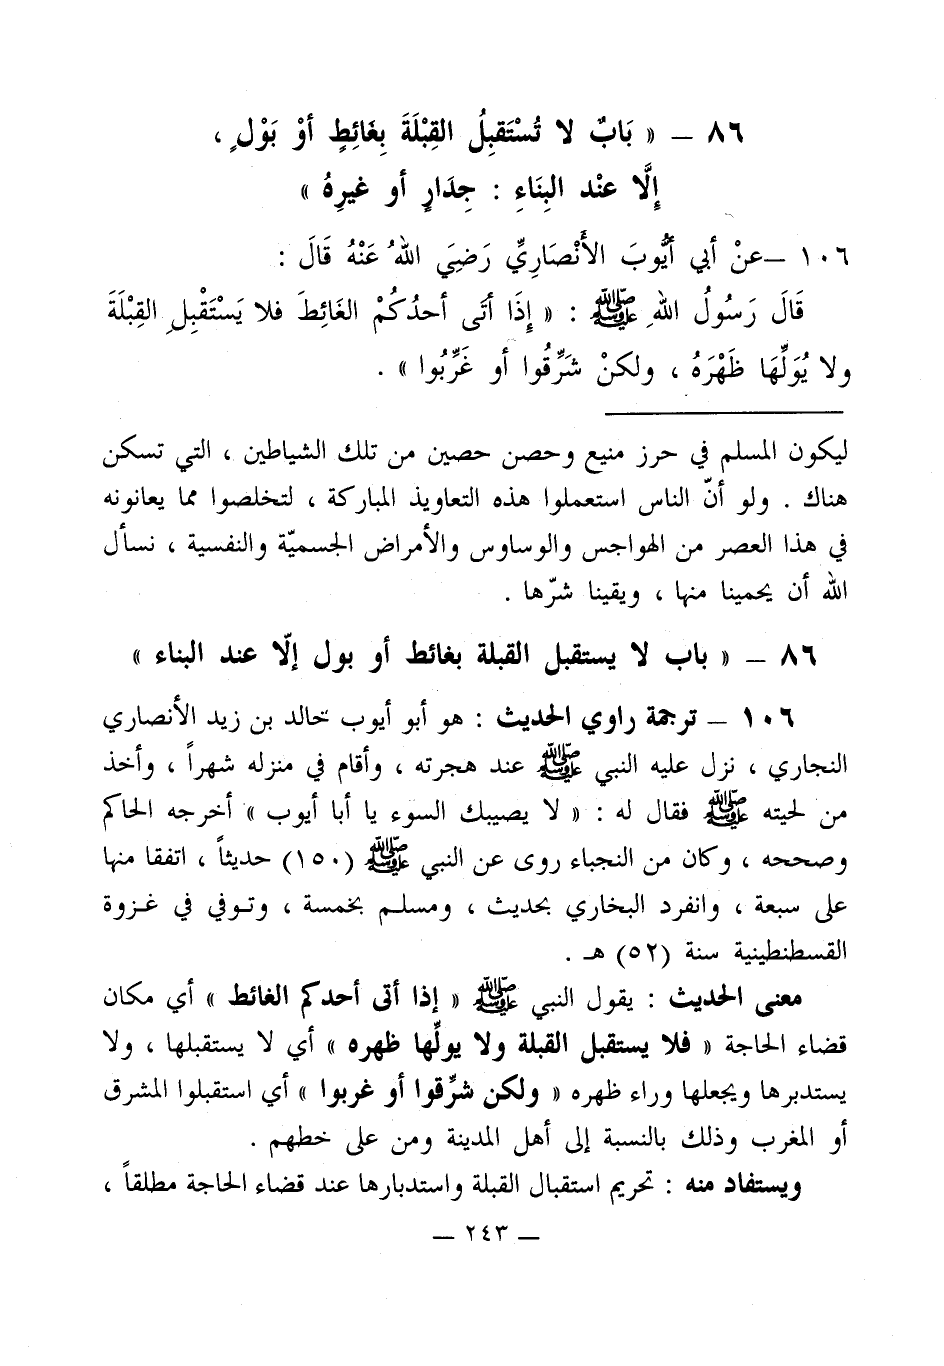 ٨٦ – « بَابٌ لا تُسْتَقبِلُ القِبْلَةَ بِغَائِطٍ أوْ بَوْلٍ ،
إِلَّا عنْد البِنَاءِ : جِدَارٍ أو غيرِهُ »
١٠٦ –عنْ أبي أيُّوبَ الأَنْصَارِيِّ رَضِيَ اللهُ عَنْهُ قَالَ :
قَالَ رَسُولُ اللهِ ﷺ : « إِذَا أتَى أحدُكُمْ الغَائِطَ فلا يَسْتَقْبِلِ القِبْلَةَ
ولا يُوَلِّهَا ظَهْرَهُ ، ولكنْ شَرِّقُوا أو غَرِّبُوا » .
ليكون المسلم في حرز منيع وحصن حصين من تلك الشياطين ، التي تسكن
هناك . ولو أنّ الناس استعملوا هذه التعاويذ المباركة ، لتخلصوا مما يعانونه
في هذا العصر من الهواجس والوساوس والأمراض الجسميّة والنفسية ، نسأل
الله أن يحمينا منها ، ويقينا شرّها .
٨٦ – « باب لا يستقبل القبلة بغائط أو بول إلّا عند البناء »
١٠٦ – ترجمة راوي الحديث : هو أبو أيوب خالد بن زيد الأنصاري
النجاري ، نزل عليه النبي ﷺ عند هجرته ، وأقام في منزله شهراً ، وأخذ
من لحيته ﷺ فقال له : « لا يصيبك السوء يا أبا أيوب » أخرجه الحاكم
وصححه ، وكان من النجباء روى عن النبي ﷺ (١٥٠) حديثاً ، اتفقا منها
على سبعة ، وانفرد البخاري بحديث ، ومسلم بخمسة ، وتوفي في غزوة
القسطنطينية سنة (٥٢) هـ .
معنى الحديث : يقول النبي ﷺ « إذا أتى أحدكم الغائط » أي مكان
قضاء الحاجة « فلا يستقبل القبلة ولا يولِّها ظهره » أي لا يستقبلها ، ولا
يستدبرها ويجعلها وراء ظهره « ولكن شرِّقوا أو غربوا » أي استقبلوا المشرق
أو المغرب وذلك بالنسبة إلى أهل المدينة ومن على خطهم .
ويستفاد منه : تحريم استقبال القبلة واستدبارها عند قضاء الحاجة مطلقاً ،
– ٢٤٣ –